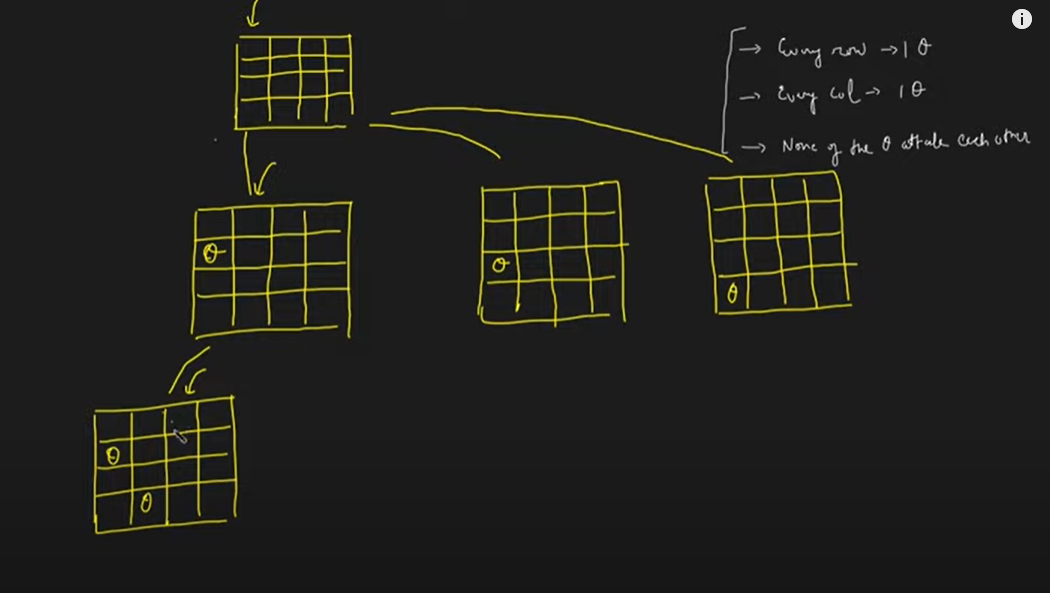 → Every row → 1 Q
→ Every col → 1 Q
→ None of the Q attack each other
Q
Q
Q
Q
Q